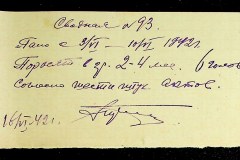 Сводная № 93.
Пано с 3/VI – 10/VI 1942 г.
Поросят в гр. 2-4 мес. 6 голов
Согласно шести штук актов.
16/VI 42 г.